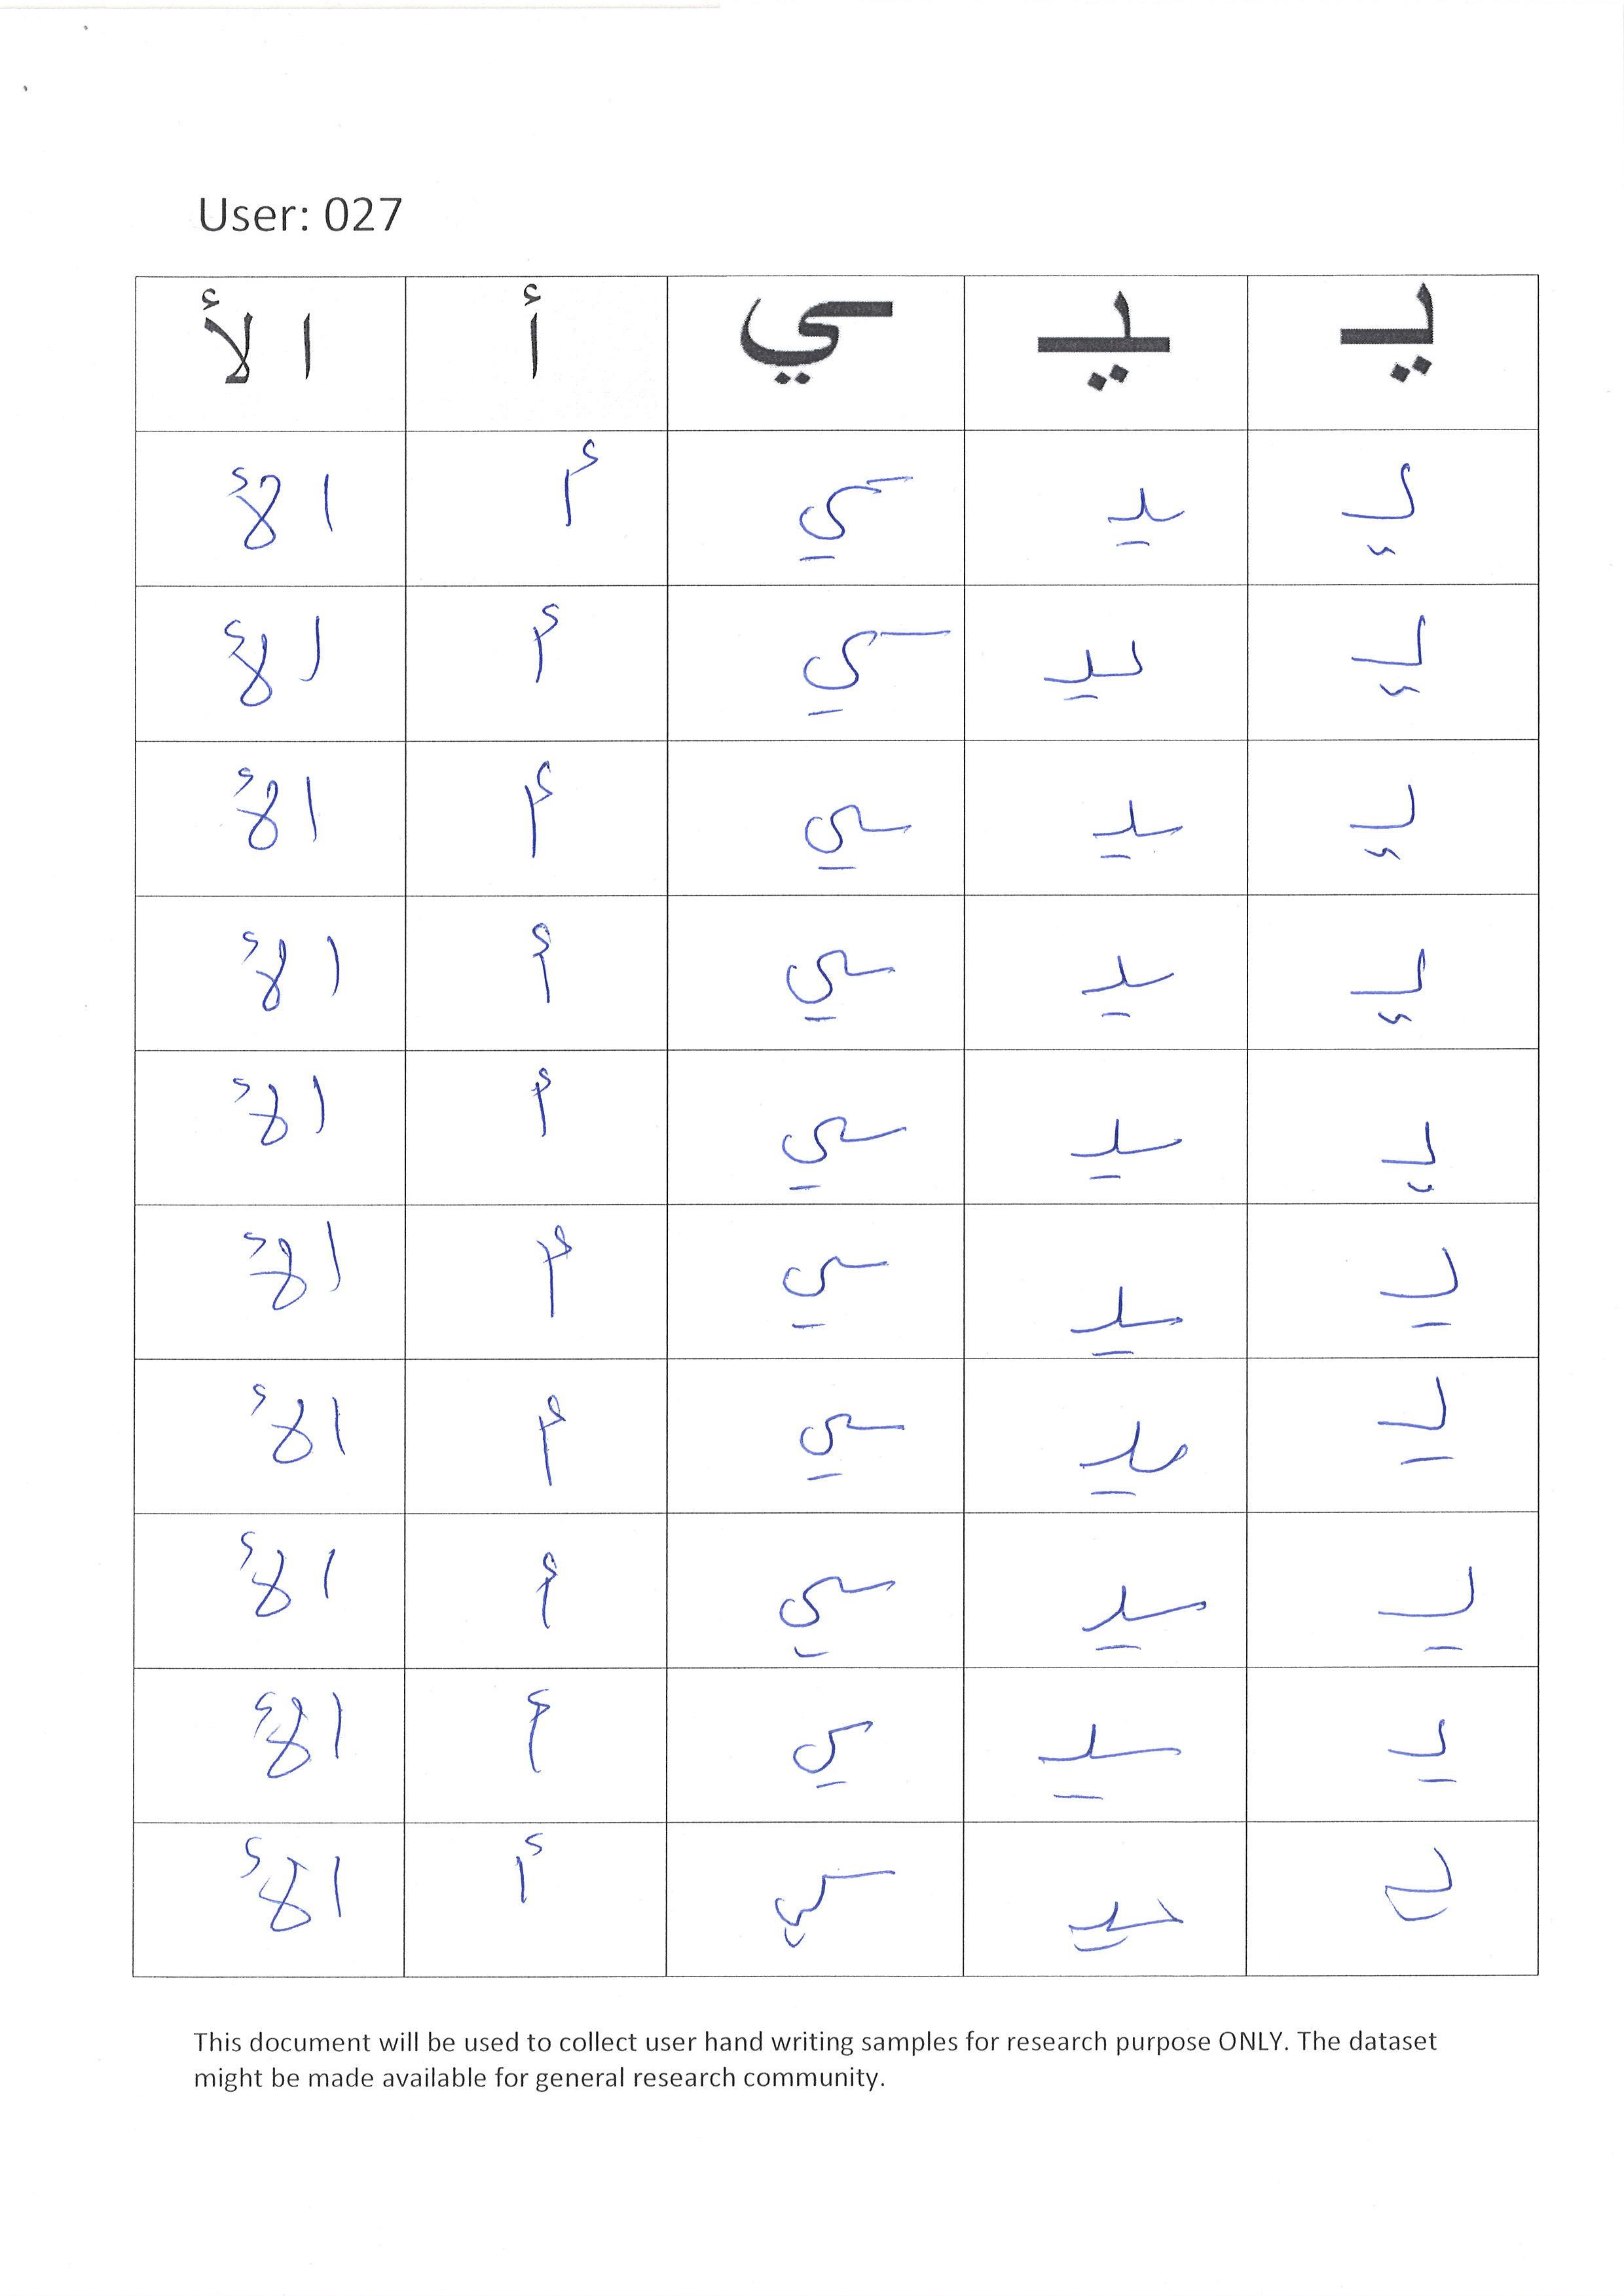 User: 027
يـ ـيـ ـي أ ا لأ
يـ ـيـ ـي أ ا لأ
يـ ـيـ ـي أ ا لأ
يـ ـيـ ـي أ ا لأ
يـ ـيـ ـي أ ا لأ
يـ ـيـ ـي أ ا لأ
يـ ـيـ ـي أ ا لأ
يـ ـيـ ـي أ ا لأ
يـ ـيـ ـي أ ا لأ
يـ ـيـ ـي أ ا لأ
يـ ـيـ ـي أ ا لأ
This document will be used to collect user hand writing samples for research purpose ONLY. The dataset
might be made available for general research community.